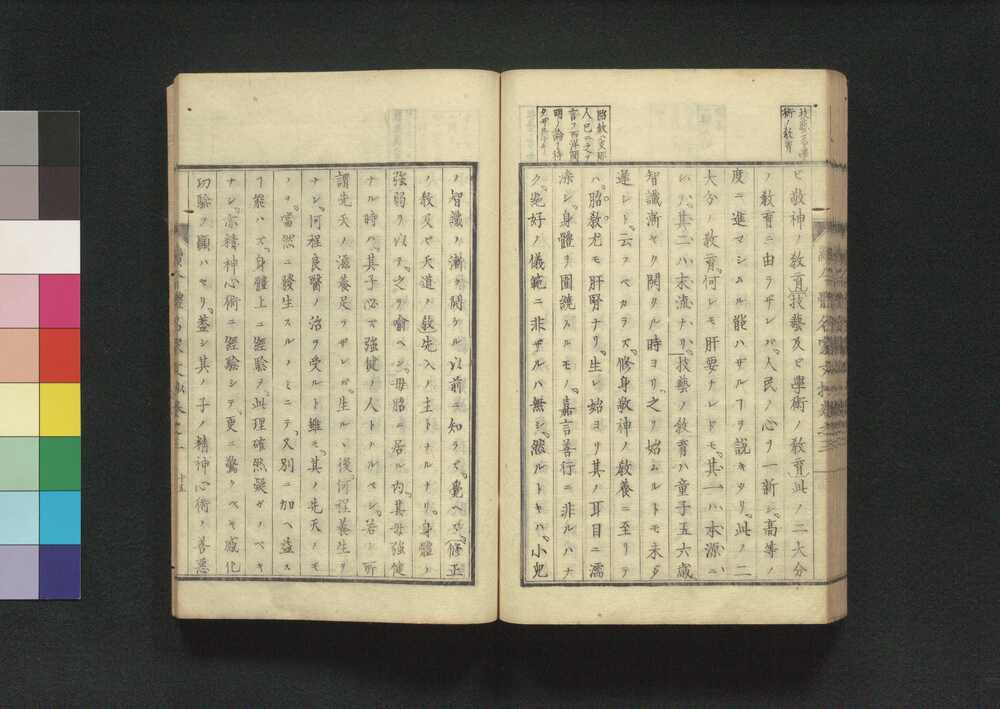 技藝及學
術ノ教育
ビ敬神ノ教育、技藝及ビ學術ノ教育、此ノ二大分
ノ教育ニ由ラザレバ、人民ノ心ヲ一新シ、高等ノ
度ニ進マシムル能ハザルヿヲ説キタリ。此ノ二
大分ノ教育、何レモ肝要ナレドモ、其一ハ本源ニ
シ、其二ハ末流ナリ。技藝ノ敎育ハ童子五六歳
智識漸ヤク開タル時ヨリ、之ヲ始ムルトモ未ダ
遲シト云フベカラズ。修身敬神ノ敎養ニ至リテ
ハ、胎敎尤モ肝腎ナリ。生レ始ヨリ其ノ耳目ニ濡
染シ、身體ヲ圍繞スルモノ、嘉言善行ニ非ルハナ
ク、宛好ノ儀範ニ非ザルハ無シ。然ルトキハ、小兒
ノ智識ノ漸ク開ケル以前ニ知ラズ覺ヘズ、修正
ノ敎又ゼ天道ノ敎、先入ノ主トナルナリ。身體ノ
強弱ヲ以テ、之ヲ喩ヘン。母胎ニ居ル内、其母強健
ナル時ハ、其子必ズ強健ノ人トナルベシ。若シ所
謂先天ノ滋養足ラザレバ、生ルヽ後、何程養生ヲ
ナシ、何程良醫ノ治ヲ受ルト雖モ、其ノ先天ノモ
ノヲ、當然ニ發生スルノミニテ、又別ニ加ヘ益ス
ヿ能ハズ。身體上ニ經驗ヲ、此理確然疑ガフベキ
ナシ。亦精神心術ニ經驗シテ、更ニ驚クベキ感化
功驗ヲ顯ハセリ。蓋シ其ノ子ノ精神心術ノ善惡
十五